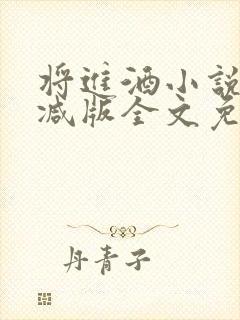 将進酒小説
减版全文免
丹青子